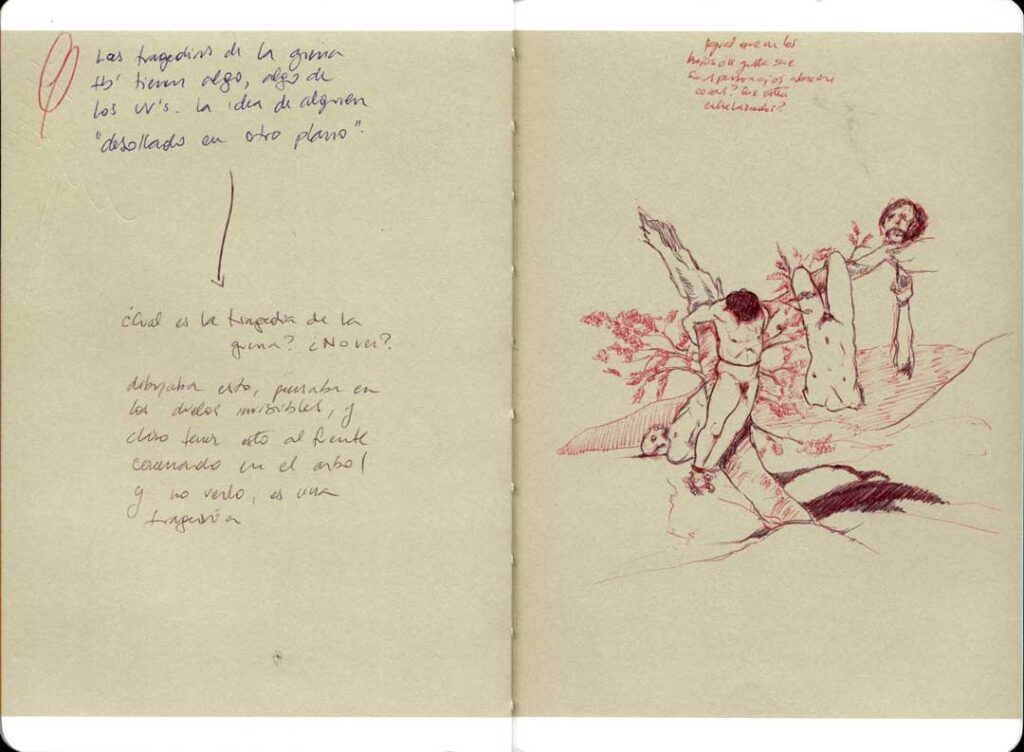 Las tragedias de la guerra
tienen algo, algo de
los W's. La idea de alguien
"desollado en otro plano".
¿Cual es la tragedia de la
guerra? ¿No ver?.
dibujaba esto, pensaba en
los duelos invisibles, y
claro tener esto al frente
en el arbol
y no verlo, es una
tragedia
Igual que en los
gusta que
los personajes abracen
cosas? Que estén
entrelazados?